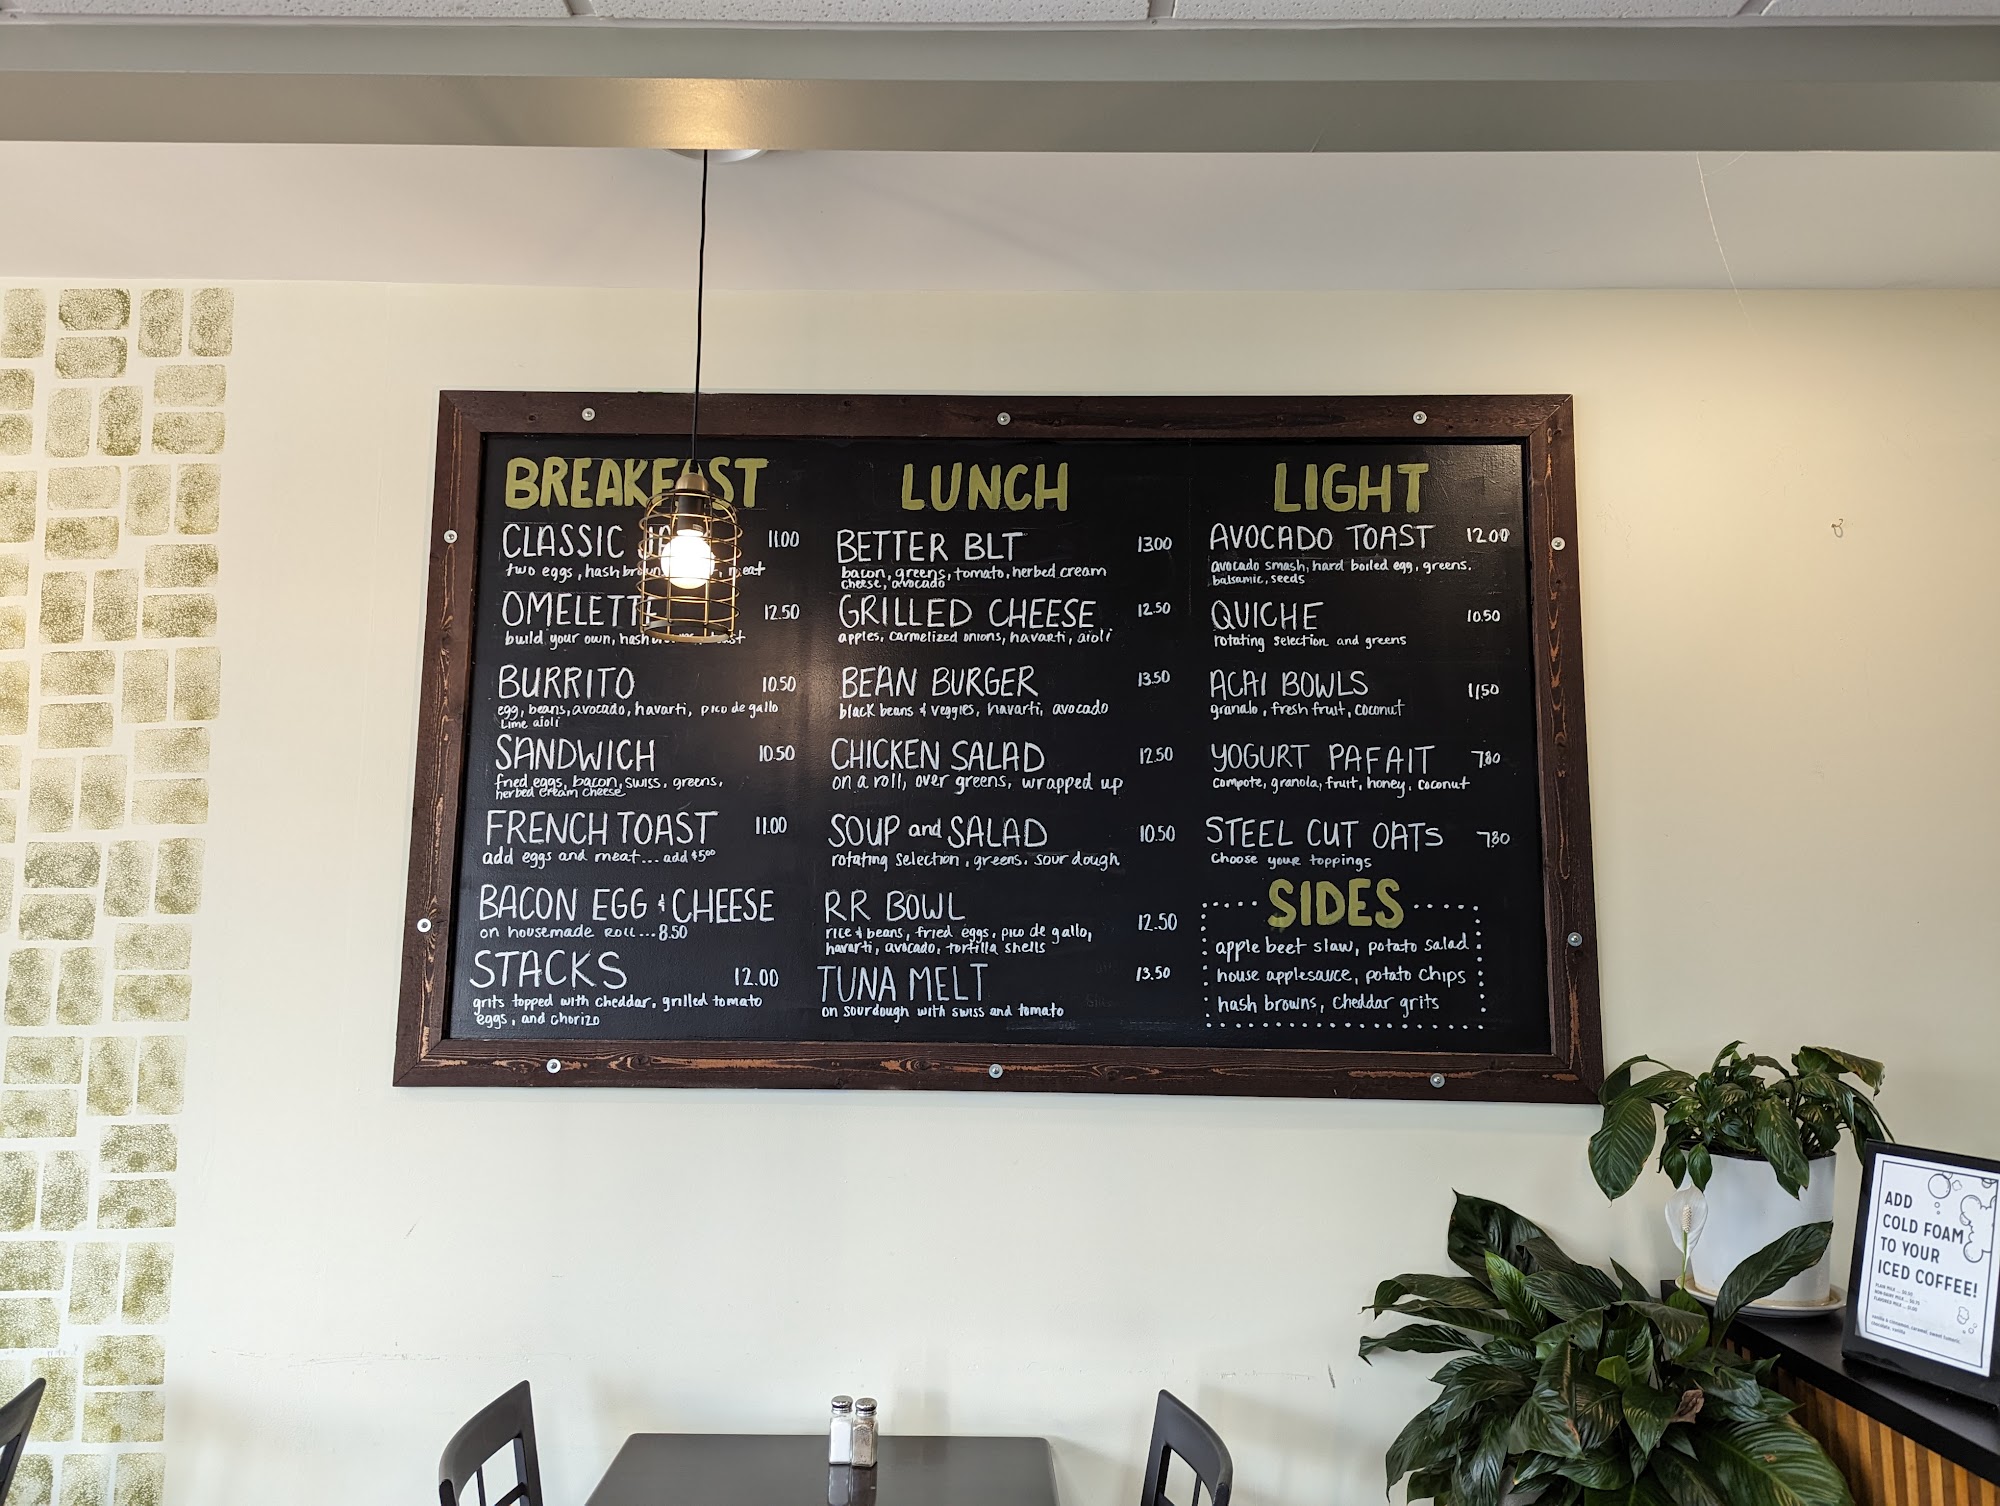 BREAKFAST
CLASSIC 11.00
two eggs, hash brown
OMELETTE 12.50
build your own, hash
BURRITO 10.50
egg, beans, avocado, havarti, pico de gallo
lime aioli
SANDWICH 10.50
fried eggs, bacon, swiss, greens,
herbed cream cheese
FRENCH TOAST 11.00
add eggs and meat... add $5⁰⁰
BACON EGG & CHEESE
on housemade roll...8.50
STACKS 12.00
grits topped with cheddar, grilled tomato
eggs, and chorizo
LUNCH
BETTER BLT 13.00
bacon, greens, tomato, herbed cream
cheese, avocado
GRILLED CHEESE 12.50
apples, carmelized onions, havarti, aioli
BEAN BURGER 13.50
black beans & veggies, havarti, avocado
CHICKEN SALAD 12.50
on a roll, over greens, wrapped up
SOUP and SALAD 10.50
rotating selection, greens, sour dough
RR BOWL 12.50
rice & beans, fried eggs, pico de gallo,
havarti, avocado, tortilla shells
TUNA MELT 13.50
on sourdough with swiss and tomato
LIGHT
AVOCADO TOAST 12.00
avocado smash, hard boiled egg, greens.
balsamic, seeds
QUICHE 10.50
rotating selection and greens
ACAI BOWLS 11.50
granalo, fresh fruit, coconut
YOGURT PAFAIT 7.80
compote, granola, fruit, honey, coconut
STEEL CUT OATS 7.80
choose your toppings
SIDES
apple beet slaw, potato salad
house applesauce, potato chips
hash browns, cheddar grits
ADD
COLD FOAM
TO YOUR
ICED COFFEE!